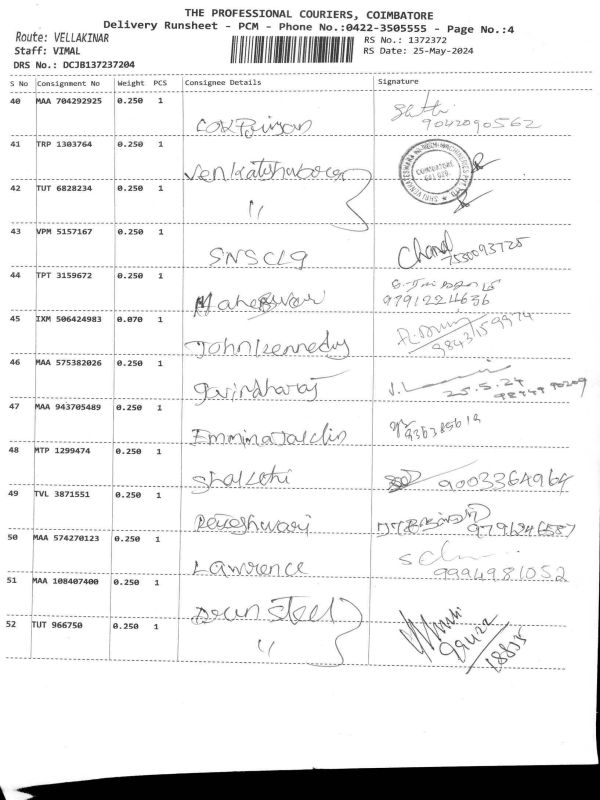 THE PROFESSIONAL COURIERS, COIMBATORE
Delivery Runsheet - PCM - Phone No.:0422-3505555 - Page No.:4
Route: VELLAKINAR
RS No.: 1372372
Staff: VIMAL
RS Date: 25-May-2024
DRS No.: DCJB137237204
S No Consignment No Weight PCS Consignee Details Signature
40 MAA 704292925 0.250 1
9042090562
41 TRP 1303764 0.250 1
42 TUT 6828234 0.250 1 "
43 VPM 5157167 0.250 1 SNS Clg Chand 7530093725
44 TPT 3159672 0.250 1 Maheswar
9791224636
45 IXM 506424983 0.070 1 John Kennedy
9843159974
46 MAA 575382026 0.250 1 Govindharaj
25.5.24
47 MAA 943705489 0.250 1
48 MTP 1299474 0.250 1 Shakthi 9003364964
49 TVL 3871551 0.250 1
50 MAA 574270123 0.250 1 Lawrence
9994981052
51 MAA 108407400 0.250 1 steel
52 TUT 966750 0.250 1 "
99422
18835